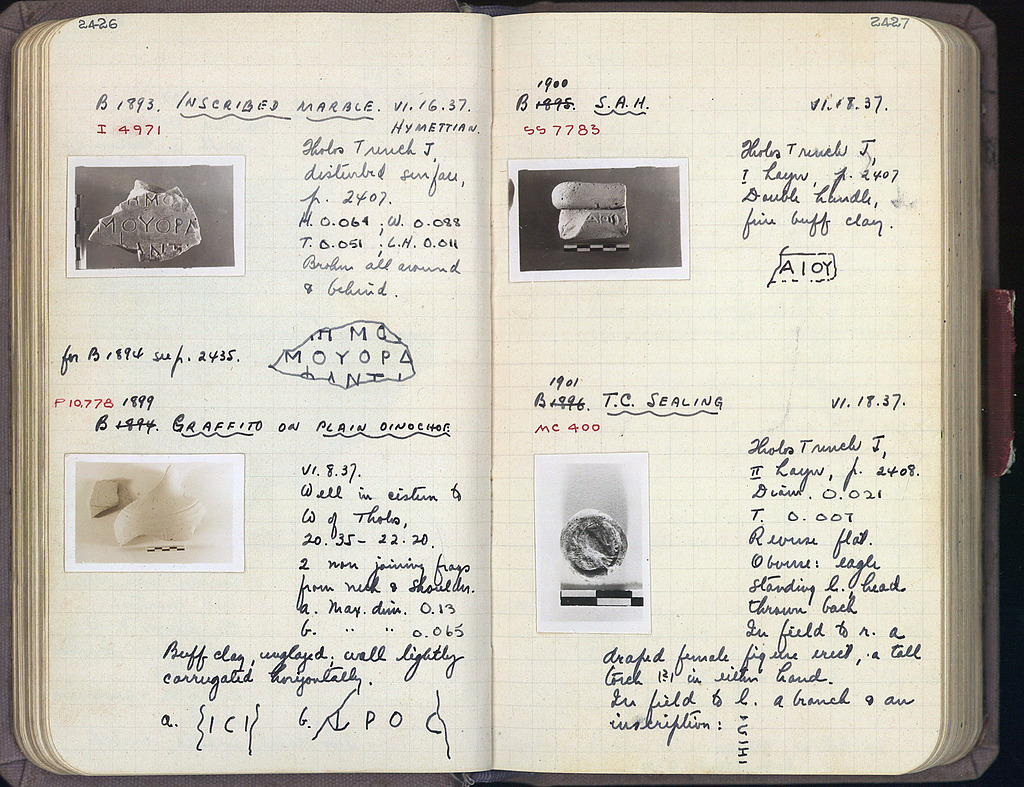 2426
B 1893. INSCRIBED MARBLE. VI.16.37.
I 4971
HYMETTIAN.
Tholos Trench J,
disturbed surface,
p. 2407.
H. 0.064 ; W. 0.088
T. 0.051 ; L.H. 0.011
Broken all around
& behind.
ΜΟΥΟΡΑ
for B 1894 see p. 2435.
ΗΜΟ
ΜΟΥΟΡΑ
ΑΝΤΙ
P 10,778 1899
B 1894. GRAFFITO ON PLAIN OINOCHOE
VI.8.37.
Well in cistern to
W of Tholos,
20.35 – 22.20.
2 non joining frags
from neck & shoulder.
a. Max. dim. 0.13
b. " " 0.065
Buff clay, unglazed; wall lightly
corrugated horizontally.
a. ΙCΙ b. ΡΟC
2427
1900
B 1895. S.A.H. VI.18.37.
SS 7783
Tholos Trench J,
I Layer, p. 2407
Double handle,
fine buff clay.
ΔΙΟΥ
1901
B 1896. T.C. SEALING VI.18.37.
MC 400
Tholos Trench J,
II Layer, p. 2408.
Diam. 0.021
T. 0.007
Reverse flat.
Obverse: eagle
standing l., head
thrown back
In field to r. a
draped female figure erect, a tall
torch in either hand.
In field to l. a branch & an
inscription: